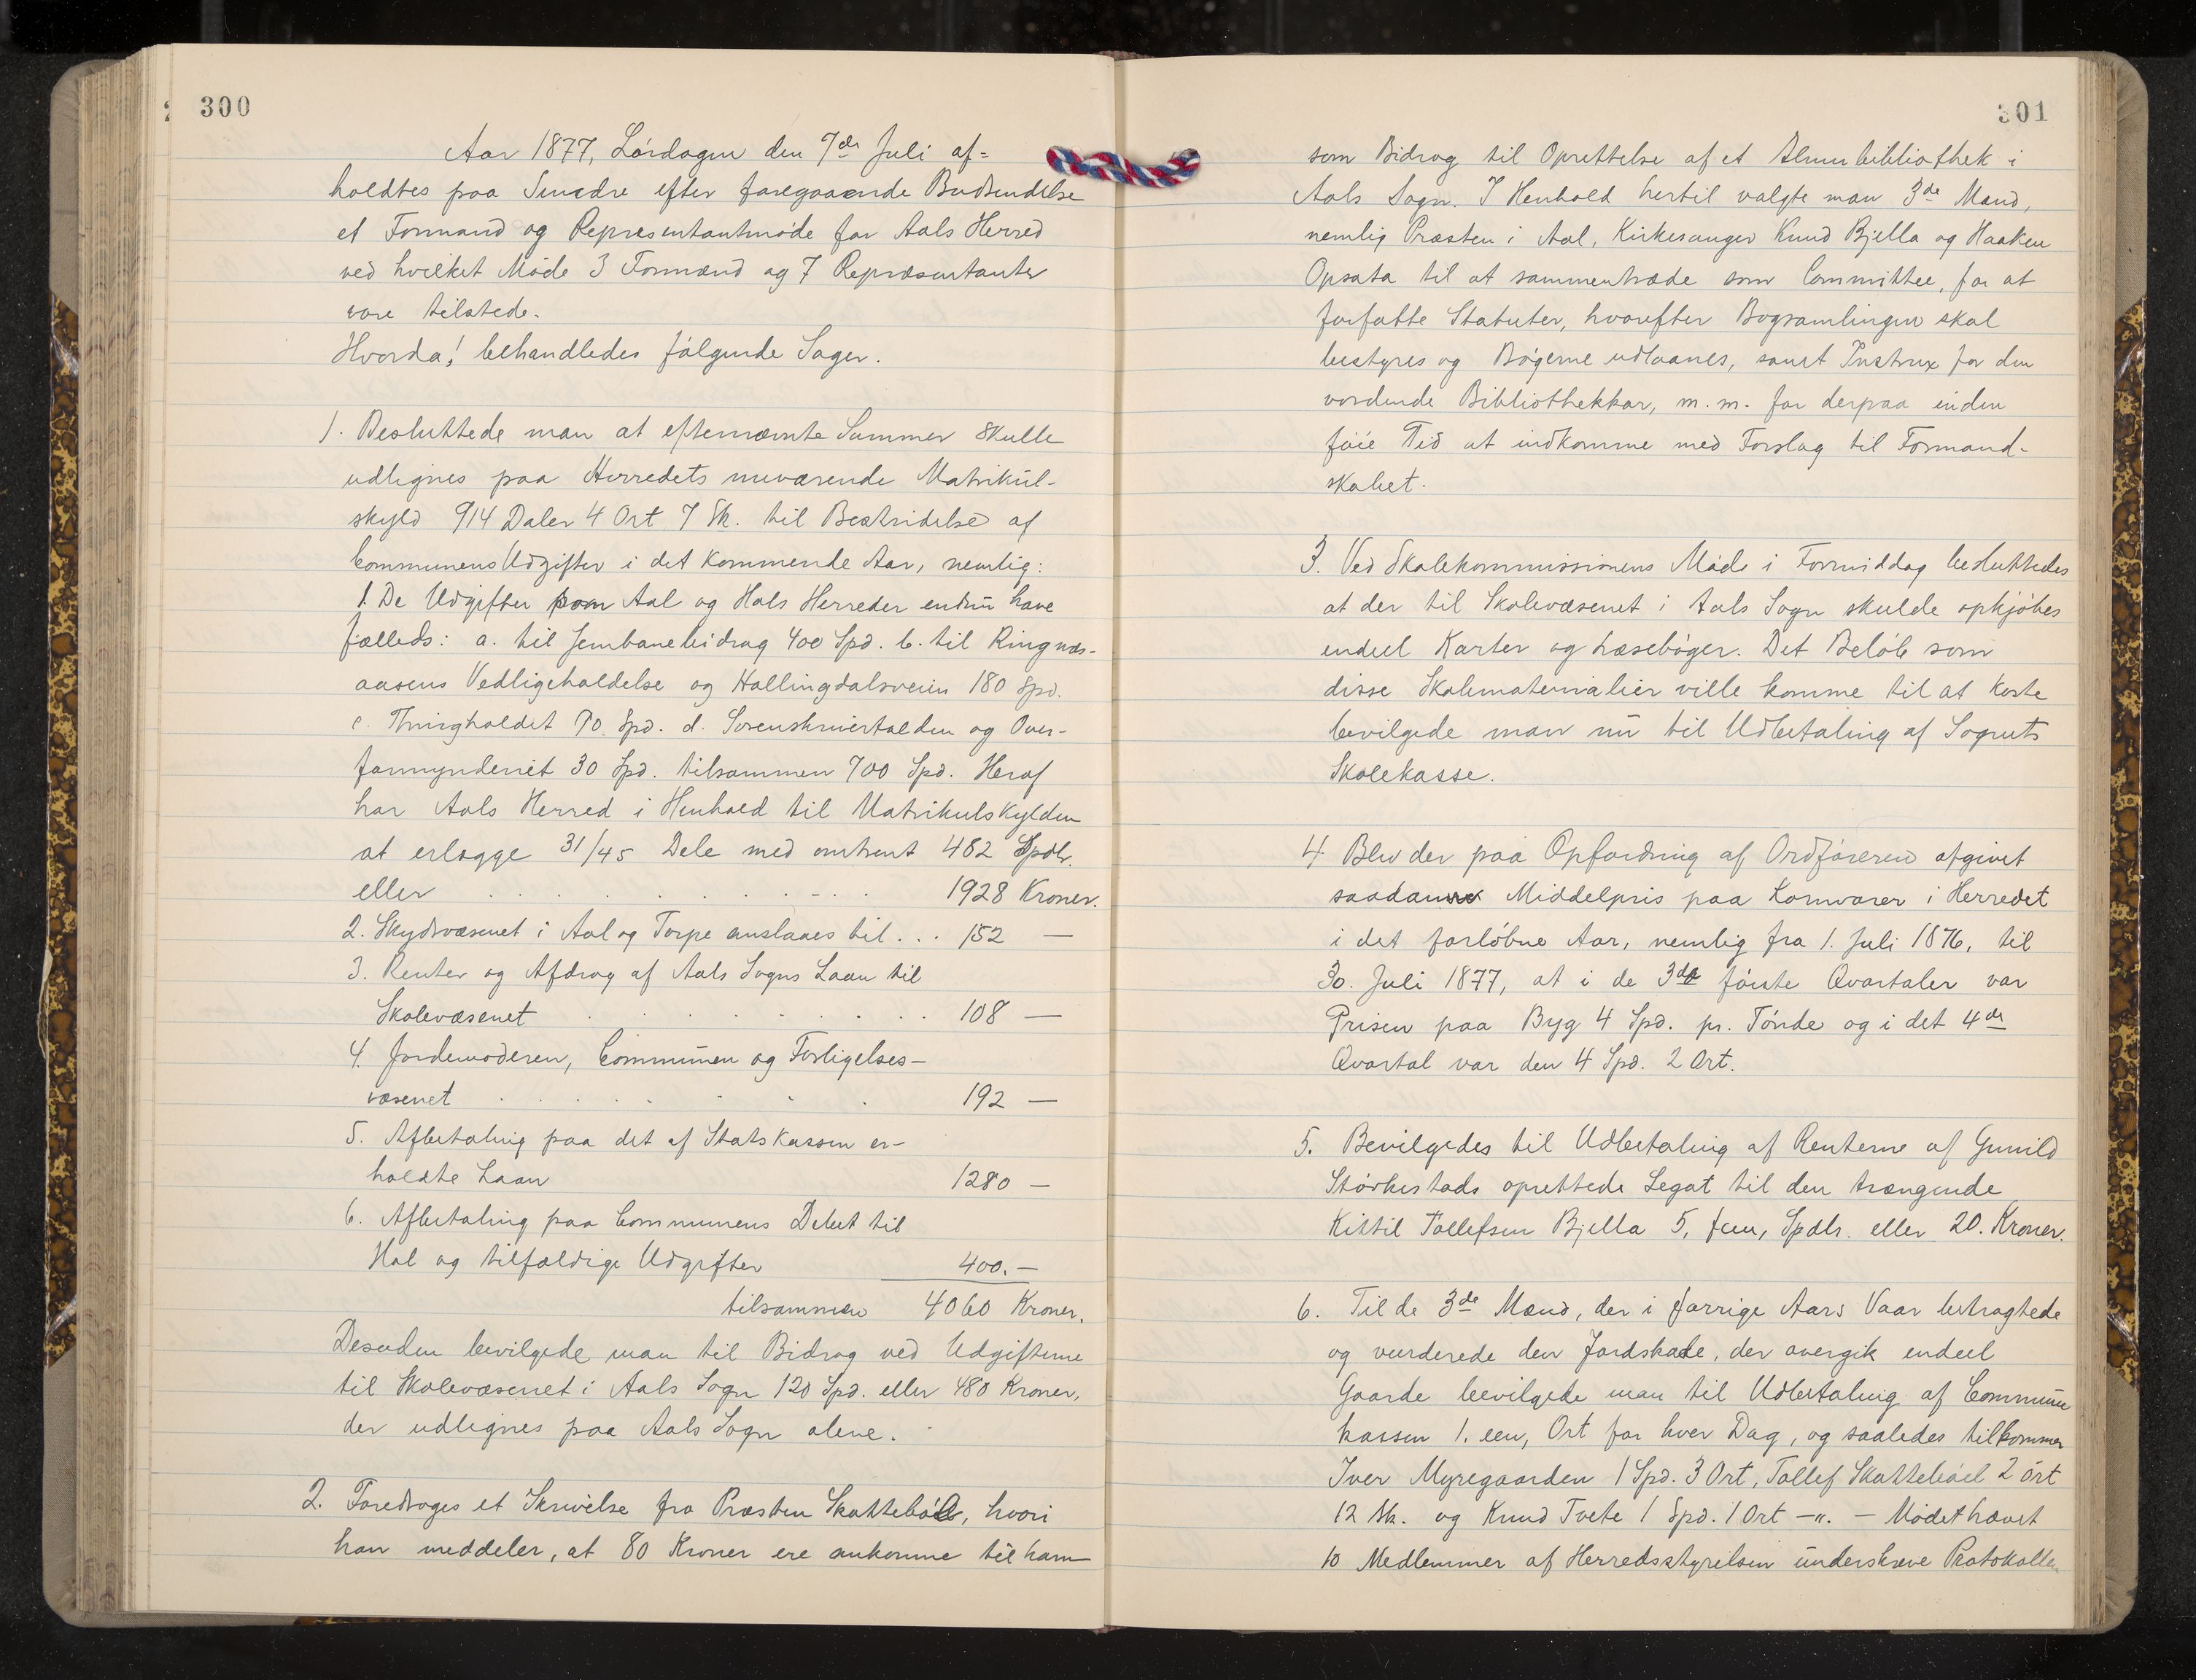 300
Aar 1877, Lørdagen den 7de Juli af=
holdtes paa Sundre efter foregaaende Budsendelse
et Formand og Representantmøde for Aals Herred
ved hvilket Møde 3 Formænd og 7 Repræsentanter
vare tilstede.
Hvorda! behandledes følgende Sager.
1. Besluttede man at efternævnte Summer skulle
udlignes paa Herredets nuværende Matrikul-
skyld 914 Daler 4 Ort 7 Sk. til Bestridelse af
Communens Udgifter i det kommende Aar, nemlig:
1. De Udgifter som Aal og Hols Herreder endnu have
fælleds: a. til Jernbanebidrag 400 Spd. b. til Ringnæs-
aasens Vedligeholdelse og Hallingdalsveien 180 Spd.
c. Thingholdet 90 Spd. d. Sorenskrivertolden og Over-
formynderiet 30 Spd. tilsammen 700 Spd. Heraf
har Aals Herred i Henhold til Matrikulskylden
at erlægge 31/45 Dele med omtrent 482 Spdlr.
eller . . . . . . . . . . 1928 Kroner.
2. Skydsvæsenet i Aal og Torpe anslaaes til . . . 152 —
3. Renter og Afdrag af Aals Sogns Laan til
Skolevæsenet . . . . . . . . . 108 —
4. Jordemoderen, Communen og Forligelses-
væsenet . . . . . . . 192 —
5. Afbetaling paa det af Statskassen er-
holdte Laan 1280 —
6. Afbetaling paa Communens Debet til
Hol og tilfældige Udgifter 400. —
tilsammen 4060 Kroner.
Desuden bevilgede man til Bidrag ved Udgifterne
til Skolevæsenet i Aals Sogn 120 Spd. eller 480 Kroner,
der udlignes paa Aals Sogn alene.
2. Foredroges et Skrivelse fra Præsten Skattebøl, hvori
han meddeler, at 80 Kroner ere ankomne til ham
301
som Bidrag til Oprettelse af et Almubibliothek i
Aals Sogn. I Henhold hertil valgte man 3de Mænd,
nemlig Præsten i Aal, Kirkesanger Knud Bjella og Haaken
Opsata til at sammentræde som Committee, for at
forfatte Statuter, hvorefter Bogsamlingen skal
bestyres og Bøgerne udlaanes, samt Instrux for den
vordende Bibliothekkar, m. m. for derpaa inden
føie Tid at indkomme med Forslag til Formand-
skabet.
3. Ved Skolekommissionens Møde i Formiddag besluttedes
at der til Skolevæsenet i Aals Sogn skulde opkjøbes
endeel Karter og Læsebøger. Det Beløb som
disse Skolematerialier ville komme til at koste
bevilgede man nu til Udbetaling af Sognets
Skolekasse.
4 Blev der paa Opfordring af Ordføreren afgivet
saadanne Middelpris paa Kornvarer i Herredet
i det forløbne Aar, nemlig fra 1. Juli 1876, til
30. Juli 1877, at i de 3de første Qvartaler var
Prisen paa Byg 4 Spd. pr. Tønde og i det 4de
Qvartal var den 4 Spd. 2 Ort.
5. Bevilgedes til Udbetaling af Renterne af Gunild
Størkestads oprettede Legat til den trængende
Kittil Tollefsen Bjella 5, fem, Spdlr. eller 20. Kroner.
6. Til de 3de Mænd, der i forrige Aars Vaar betragtede
og vurderede den Jordskade, der overgik endeel
Gaarde bevilgede man til Udbetaling af Commune
kassen 1. een, Ort for hver Dag, og saaledes tilkommer
Iver Myregaarden 1 Spd. 3 Ort, Tollef Skattebøel 2 Ort
12 Sk. og Knud Tvete 1 Spd. 1 Ort —". — Mødet hævet
10 Medlemmer af Herredsstyrelsen underskreve Protokollen